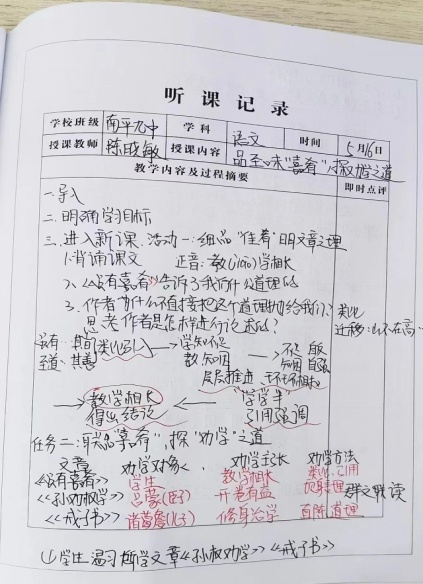 听课记录
学校班级 南平九中 学科 语文 时间 5月16日
授课教师 陈晓敏 授课内容 品至味"嘉肴",探劝学之道
教学内容及过程摘要 即时点评
一.导入
二.明确学习目标
三.进入新课.活动一:细品"佳肴"明文章之理
1.背诵课文 正音:教(jiào)学相长
2.《虽有嘉肴》告诉了我们什么道理的
3.作者为什么不直接把这个道理抛给我们? 类比
思考作者是怎样进行论述的? 迁移:山不在高…
虽有…其旨 类比引入 → 学知不足 → 不足 自反
至道…其善 教知困 知困 自强
层层推进,环环相扣
→ 教学相长 ← "学学半"
得出结论 引用强调
任务二:联品"嘉肴",探"劝学"之道
文章 劝学对象 劝学主张 劝学方法
《虽有嘉肴》 学生 教学相长 类比、引用
《孙权劝学》 吕蒙(臣子) 开卷有益 群文联读
《诫子书》 诸葛瞻(儿子) 修身治学 直陈道理
(1)学生温习所学文章《孙权劝学》《诫子书》